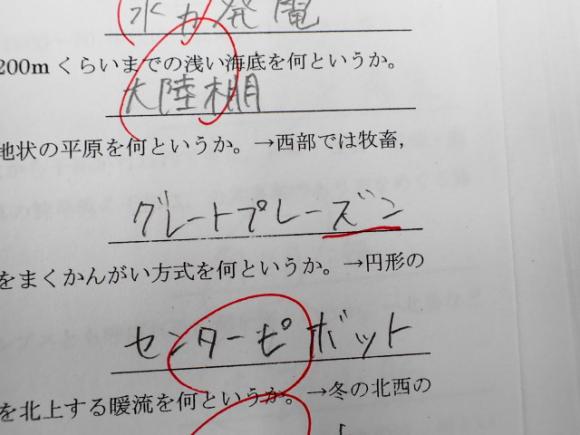 水力発電
200mくらいまでの浅い海底を何というか。
大陸棚
地状の平原を何というか。→西部では牧畜,
グレートプレーズン
をまくかんがい方式を何というか。→円形の
センターピボット
を北上する暖流を何というか。→冬の北西の